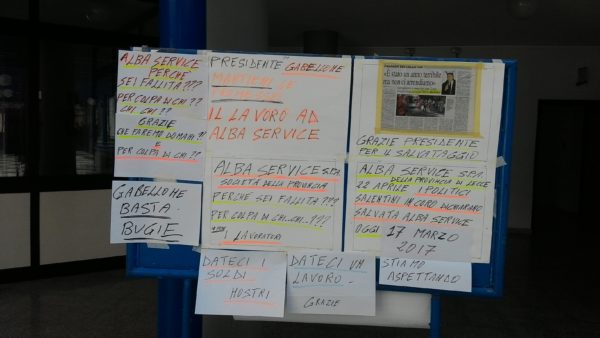 ALBA SERVICE
PERCHÉ
SEI FALLITA???
PER COLPA DI CHI??
CHI. CHI.??
GRAZIE
CHE FAREMO DOMANI?!
E
PER COLPA DI CHI.??
GABELLONE
BASTA
BUGIE
PRESIDENTE GABELLONE
MANTIENI LE
PROMESSE
IL LAVORO AD
ALBA SERVICE
ALBA SERVICE S.P.A.
SOCIETÀ DELLA PROVINCIA
PERCHÉ SEI FALLITA???
PER COLPA DI CHI..CHI..???
I LAVORATORI
DATECI I
SOLDI
NOSTRI
DATECI UN
LAVORO -
GRAZIE
«È stato un anno terribile
ma non ci arrendiamo»
GRAZIE PRESIDENTE
PER IL SALVATAGGIO
ALBA SERVICE S.P.A.
DELLA PROVINCIA DI LECCE
22 APRILE I POLITICI
SALENTINI IN CORO DICHIARANO
SALVATA ALBA SERVICE
OGGI 17 MARZO
2017
STIAMO
ASPETTANDO